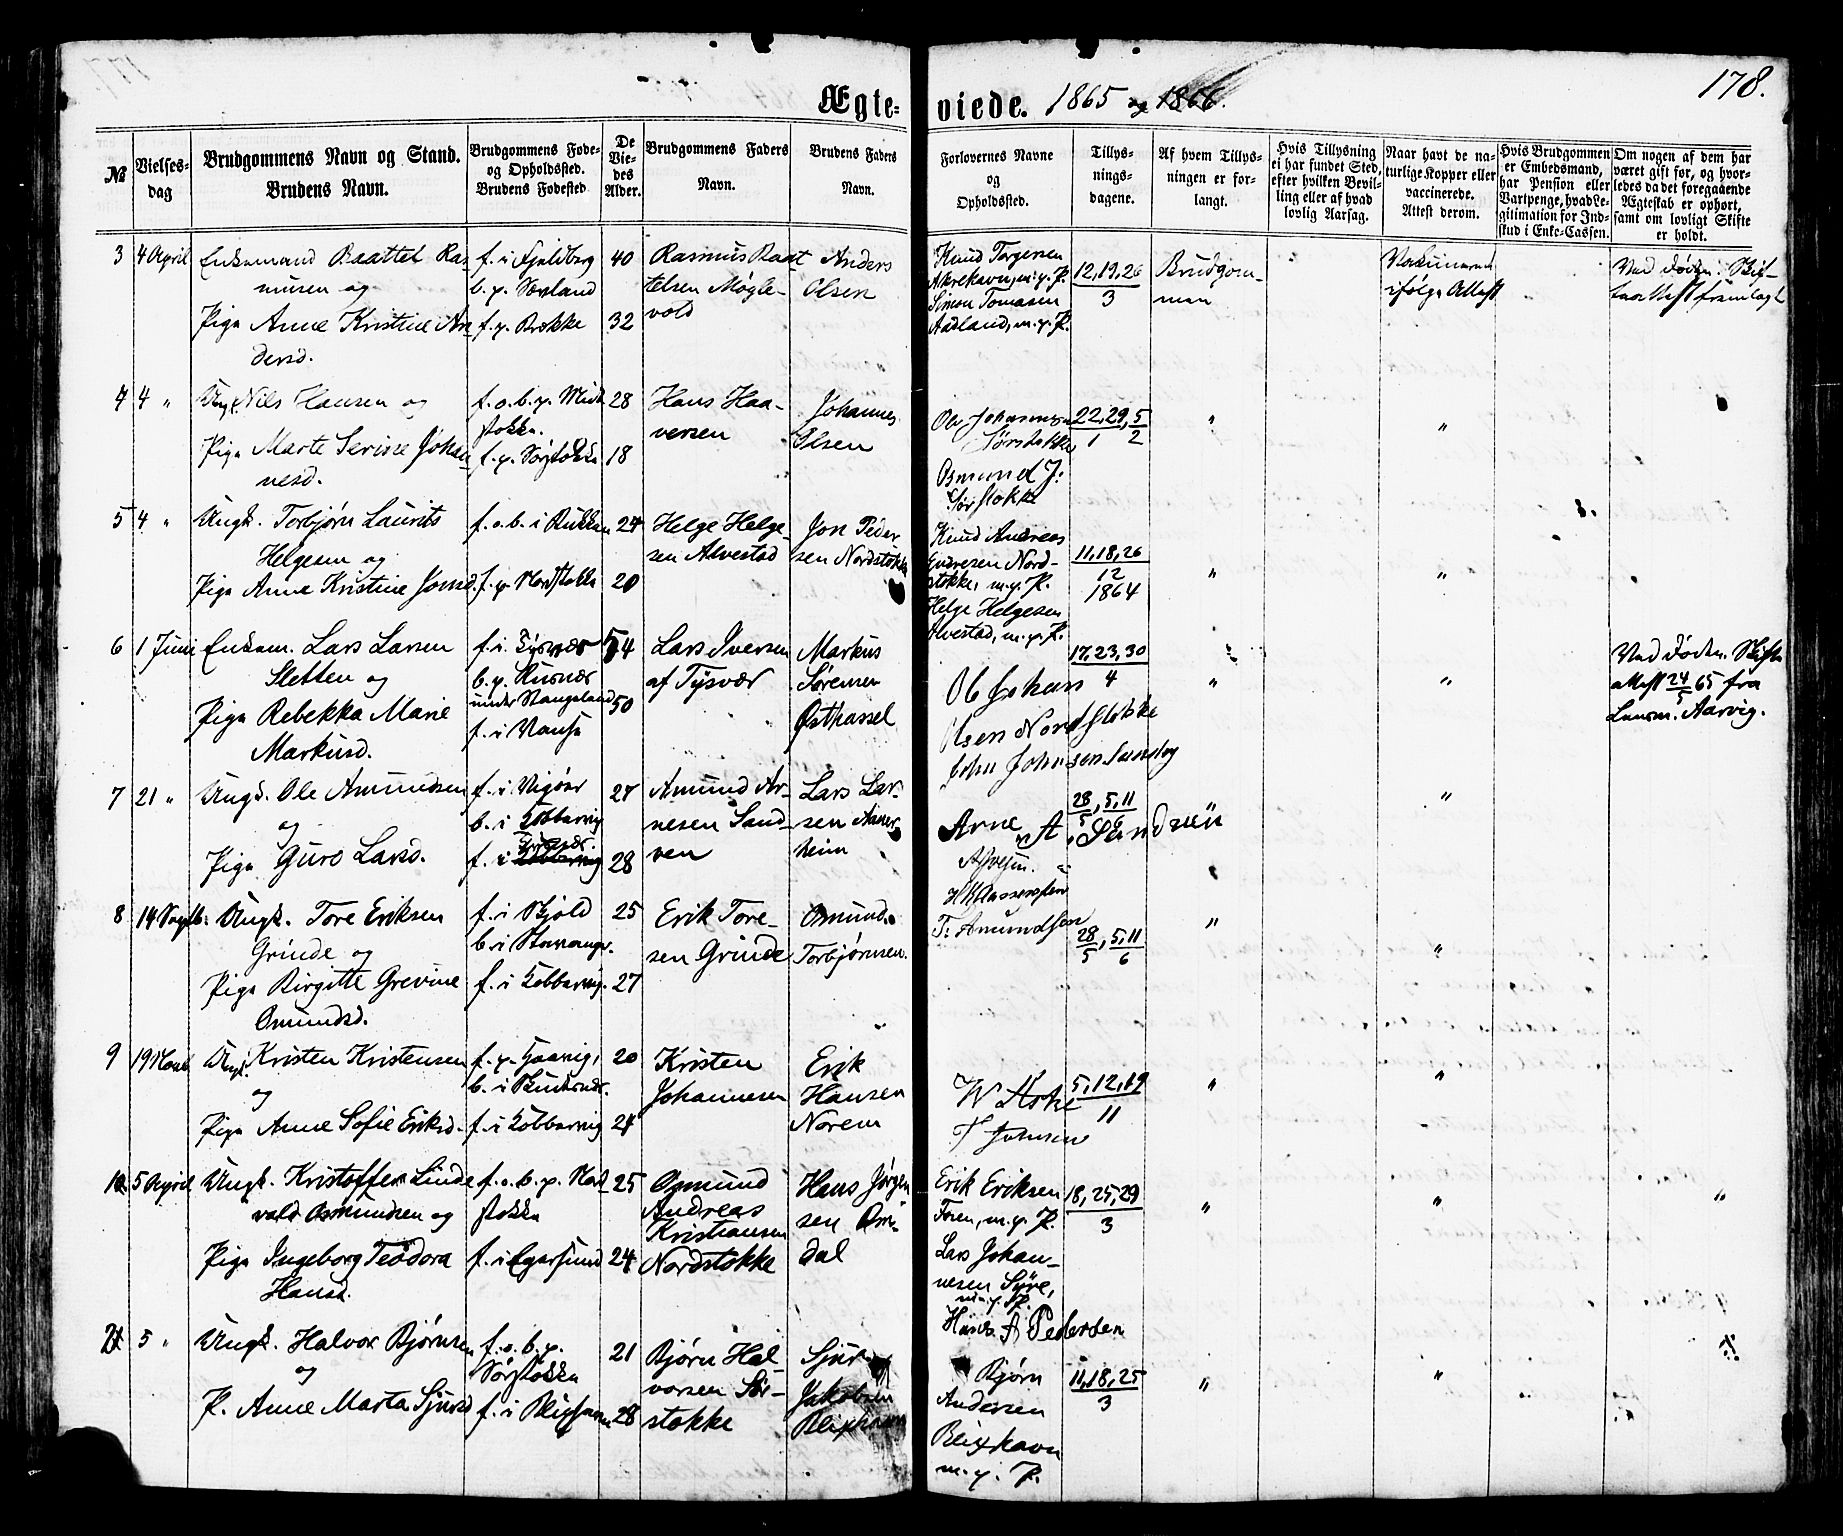 178.
Ægte- viede. 1865 og 1866.
№
Vielses-
dag
Brudgommens Navn og Stand.
Brudens Navn.
Brudgommens Føde-
og Opholdssted.
Brudens Fødested
De
Vie-
des
Alder.
Brudgommens Faders
Navn.
Brudens Faders
Navn.
Forlovernes Navne
og
Opholdssted.
Tillys-
nings-
dagene.
Af hvem Tillys-
ningen er for-
langt.
Hvis Tillysning
ei har fundet Sted,
efter hvilken Bevil-
ling eller af hvad
lovlig Aarsag.
Naar havt de na-
turlige Kopper eller
vaccinerede.
Attest derom.
Hvis Brudgommen
er Embedsmand,
har Pension eller
Vartpenge, hvad Le-
gitimation for Ind-
skud i Enke-Cassen.
Om nogen af dem har
været gift før, og hvor-
ledes da det foregaaende
Ægteskab er ophørt,
samt om lovligt Skifte
er holdt.
3 4 April Enkemand Baattel Ras-
musen og
Pige Anne Kristine An-
dersd.
f. i Fjeldberg
b. p. Sævland
f. p. Brekke
40
32
Rasmus Baat-
telsen Møgle-
vold
Anders
Olsen
Knud Torgersen
Akrehavn, m. p. P.
Simon Tomasen
Aadland, m. p. P.
12, 19, 26
3
Brudgom-
men
ifølge Attest
Ved Døden. Skif-
teattest fremlagt
4 4 " Ungk. Nils Hansen og
Pige Marte Serine Johan-
nesd.
f. o. b. p. Midt-
stokke.
f. p. Sørstokke
28
18
Hans Haa-
versen
Johannes
Olsen
Ole Johannesen
Sørstokke
Osmund J:
Sørstokke
22, 29, 5
1 2
"
"
5 4 " Ungk. Torbjørn Laurits
Helgesen og
Pige Anne Kristine Jonsd.
f. o. b. i Bukken
f. p. Nordstokke
24
20
Helge Helge-
sen Alvestad
Jon Peder-
sen Nordstokke
Knud Andreas
Endresen Nord-
stokke, m. p. P.
Helge Helgesen
Alvestad, m. p. P.
11, 18, 26
12
1864
"
"
6 1 Juni Enkem. Lars Larsen
Sletten og
Pige Rebekka Marie
Markusd.
f. i. Tysvær
b. p. Husnær
under Stangeland
f. i Vanse
54
50
Lars Iversen
af Tysvær
Markus
Sørensen
Østhassel
Ole Johan
Olsen Nordstokke
John Johnsen
17, 23, 30
4
"
"
Ved Døden. Skifte-
attest 24/5 65 fra
Lensm. Aarvig.
7 21 " Ungk. Ole Amundsen
og
Pige Guro Larsd.
f. i Vigöer
b. i Kobbervig
f. i Kobbervig
27
28
Amund Ar-
nesen Sand-
ven
Lars Lar-
sen
heim
Arne A. Sandven
28, 5, 11
5 6
"
8 14 Septb. Ungk. Tore Eriksen
Grinde og
Pige Birgitte Grevine
Omundsd.
f. i Skjold
b. i Stavanger.
f. i Kobbervig.
25
27
Erik Tore-
sen Grinde
Omund
Torbjørnsen.
T. Amundsen
28, 5, 11
5 6
"
"
9 19 Novb Ungk. Kristen Kristensen
og
Pige Anne Sofie Eriksd.
f. p. Haavig,
b. i Skudesnæs.
f. i Kobbervig
20
24
Kristen
Johannesen
Erik
Hansen
Norem
W Aske
T Johnsen
5, 12, 19
11
"
"
10 5 April Ungk. Kristoffer Linde-
vald Osmundsen og
Pige Ingeborg Teodora
Hansd.
f. o. b. p. Nord-
stokke
f. i Egersund
25
24
Osmund
Andreas
Kristiansen
Nordstokke
Hans Jørgen-
sen Om-
dal
Erik Eriksen
Foren, m. p. P.
Lars Johan-
nesen Syre,
m. p. P.
18, 25, 29
3
"
"
"
2 5 " Ungk. Halvor Bjørnsen
og
P. Anne Marta Sjursd
f. o. b. p.
Sørstokke
f. i Bligshavn
21
28
Bjørn Hal-
vorsen Sør-
stokke
Sjur
Jakobsen
Blixhavn
Hans A Pedersen
Bjørn
Andersen
Blixhavn
m. p. P.
11, 18, 25
3
"
"